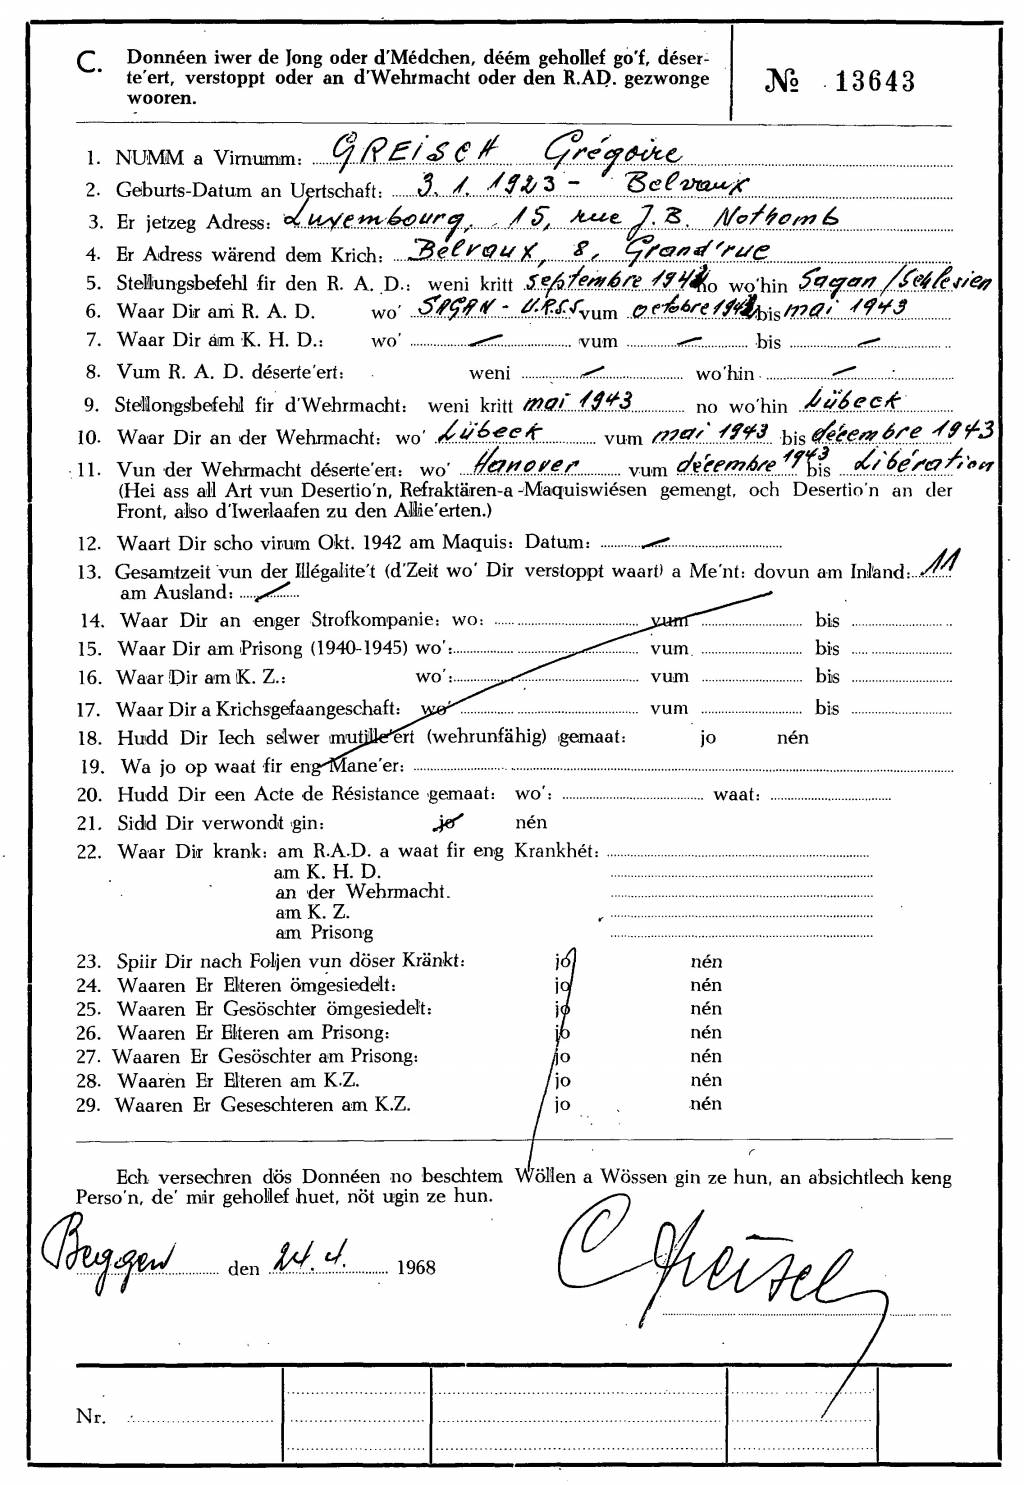 C. Donnéen iwer de Jong oder d'Médchen, déém gehollef go'f, déser-
te'ert, verstoppt oder an d'Wehrmacht oder den R.AD. gezwonge
wooren.
№ 13643
1. NUMM a Virnumm: GREISCH Grégoire
2. Geburts-Datum an Uertschaft: 3.1.1923 - Belvaux
3. Er jetzeg Adress: Luxembourg, 15, rue J.B. Nothomb
4. Er Adress wärend dem Krich: Belvaux, 8, Grand'rue
5. Stellungsbefehl fir den R. A. D.: weni kritt septembre 1942 no wo'hin Sagan/Schlesien
6. Waar Dir am R. A. D. wo' SAGAN - U.R.S.S vum octobre 1942 bis mai 1943
7. Waar Dir am K. H. D.: wo' — vum — bis —
8. Vum R. A. D. déserte'ert: weni — wo'hin —
9. Stellongsbefehl fir d'Wehrmacht: weni kritt mai 1943 no wo'hin Lübeck
10. Waar Dir an der Wehrmacht: wo' Lübeck vum mai 1943 bis décembre 1943
11. Vun der Wehrmacht déserte'ert: wo' Hanover vum décembre 1943 bis Libération
(Hei ass all Art vun Desertio'n, Refraktären-a-Maquiswiésen gemengt, och Desertio'n an der
Front, also d'Iwerlaafen zu den Allie'erten.)
12. Waart Dir scho virum Okt. 1942 am Maquis: Datum: —
13. Gesamtzeit vun der Illégalite't (d'Zeit wo' Dir verstoppt waart) a Me'nt: dovun am Inland: 11
am Ausland: —
14. Waar Dir an enger Strofkompanie: wo: vum bis
15. Waar Dir am Prisong (1940-1945) wo': vum bis
16. Waar Dir am K. Z.: wo': vum bis
17. Waar Dir a Krichsgefaangeschaft: wo' vum bis
18. Hudd Dir Iech selwer mutille'ert (wehrunfähig) gemaat: jo nén
19. Wa jo op waat fir eng Mane'er:
20. Hudd Dir een Acte de Résistance gemaat: wo': waat:
21. Sidd Dir verwondt gin: jo nén
22. Waar Dir krank: am R.A.D. a waat fir eng Krankhét:
am K. H. D.
an der Wehrmacht.
am K. Z.
am Prisong
23. Spiir Dir nach Foljen vun döser Kränkt: jo nén
24. Waaren Er Elteren ömgesiedelt: jo nén
25. Waaren Er Gesöschter ömgesiedelt: jo nén
26. Waaren Er Elteren am Prisong: jo nén
27. Waaren Er Gesöschter am Prisong: jo nén
28. Waaren Er Elteren am K.Z. jo nén
29. Waaren Er Geseschteren am K.Z. jo nén
Ech versechren dös Donnéen no beschtem Wöllen a Wössen gin ze hun, an absichtlech keng
Perso'n, de' mir gehollef huet, nöt ugin ze hun.
Beggen den 24.4. 1968
Nr.